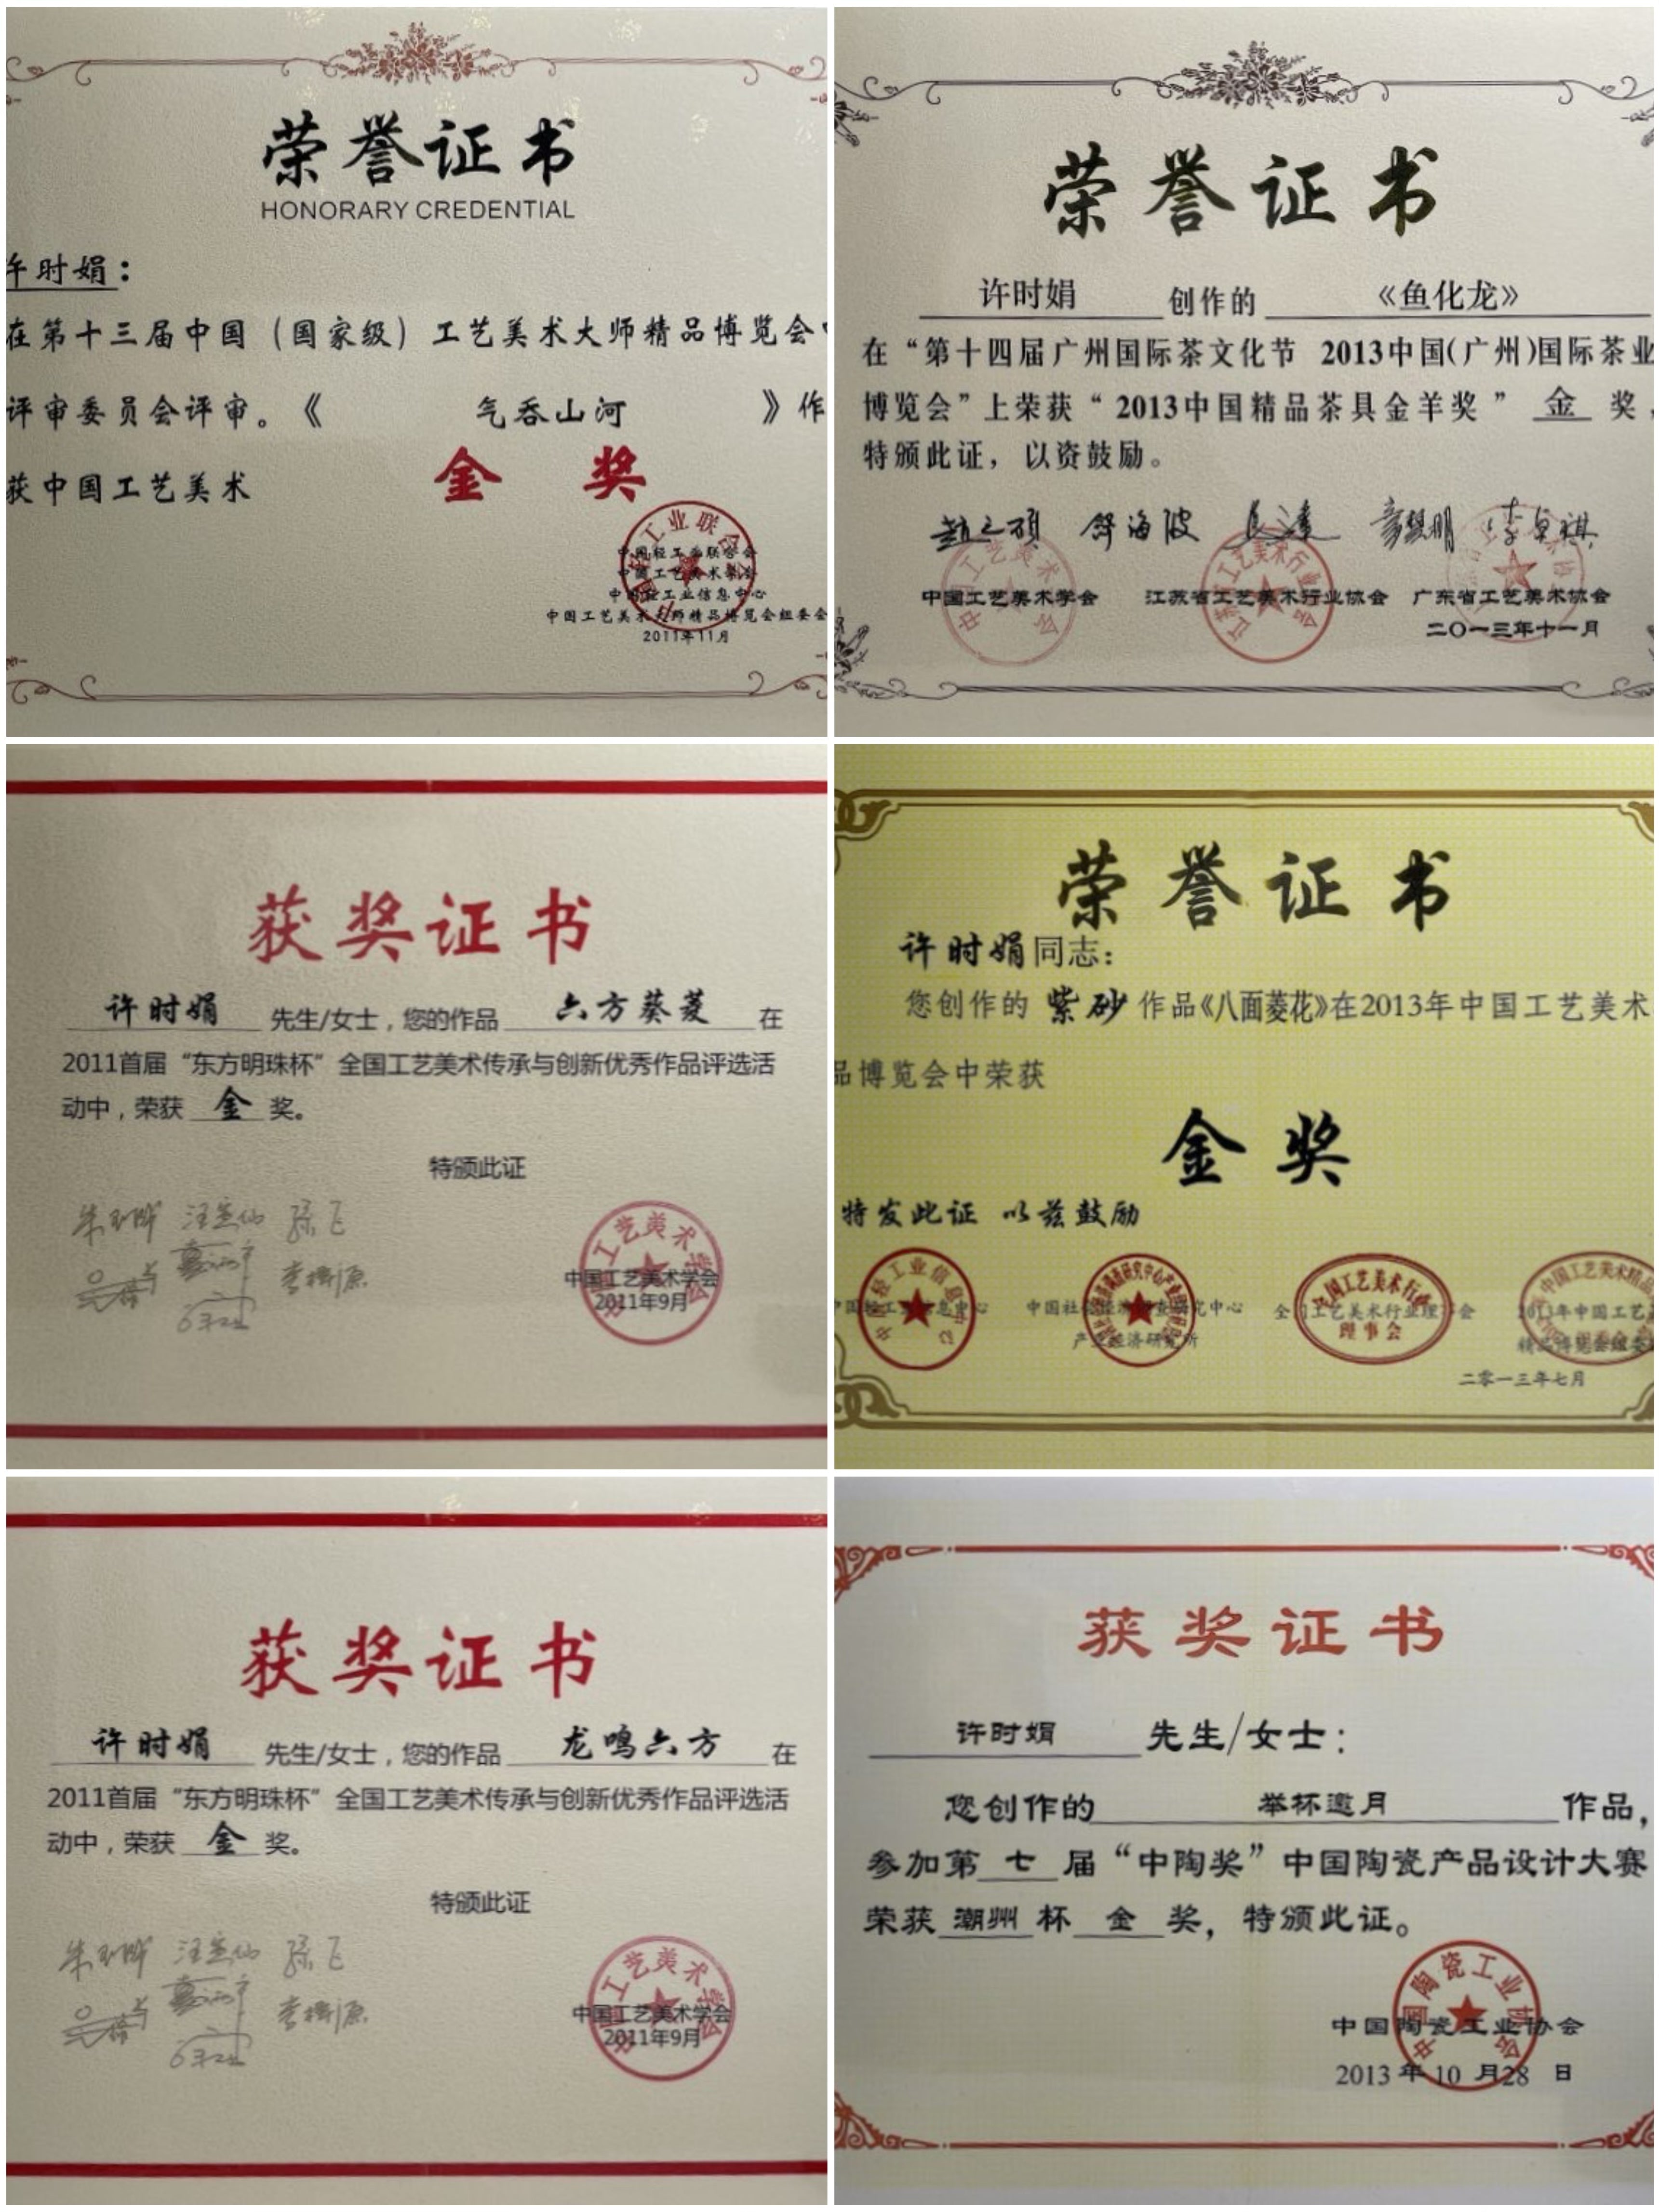 荣誉证书
HONORARY CREDENTIAL
许时娟：
在第十三届中国（国家级）工艺美术大师精品博览会
评审委员会评审。《 气吞山河 》作
获中国工艺美术 金 奖
中国轻工业联合会
中国工艺美术学会
中国轻工业信息中心
中国工艺美术大师精品博览会组委会
2011年11月
荣誉证书
许时娟 创作的 《鱼化龙》
在“第十四届广州国际茶文化节 2013中国(广州)国际茶业
博览会”上荣获“2013中国精品茶具金羊奖” 金 奖，
特颁此证，以资鼓励。
中国工艺美术学会 江苏省工艺美术行业协会 广东省工艺美术协会
二〇一三年十一月
获奖证书
许时娟 先生/女士，您的作品 六方葵菱 在
2011首届“东方明珠杯”全国工艺美术传承与创新优秀作品评选活
动中，荣获 金 奖。
特颁此证
中国工艺美术学会
2011年9月
荣誉证书
许时娟同志：
您创作的 紫砂 作品《八面菱花》在2013年中国工艺美术
品博览会中荣获
金奖
特发此证 以兹鼓励
中国轻工业信息中心 中国社会经济调查研究中心 全国工艺美术行业理事会 2013年中国工艺美
产业经济研究所 精品博览会组委
二零一三年七月
获奖证书
许时娟 先生/女士，您的作品 龙鸣六方 在
2011首届“东方明珠杯”全国工艺美术传承与创新优秀作品评选活
动中，荣获 金 奖。
特颁此证
中国工艺美术学会
2011年9月
获奖证书
许时娟 先生/女士：
您创作的 举杯邀月 作品，
参加第 七 届“中陶奖”中国陶瓷产品设计大赛
荣获 潮州 杯 金 奖，特颁此证。
中国陶瓷工业协会
2013 年 10 月28 日